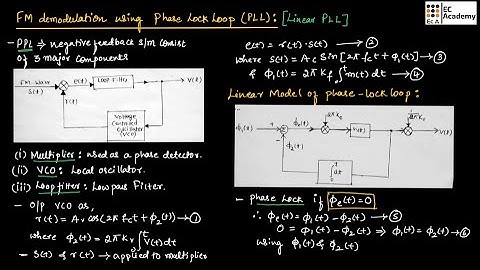 FM demodulation using Phase Lock Loop (PLL): [Linear PLL]
EC Academy
- PPL → negative feedback s/m consist
of 3 major components
FM Wave
S(t)
e(t)
Loop Filter
V(t)
r(t)
Voltage
Controlled
Oscillator
(VCO)
(i) Multiplier: used as a phase detector.
(ii) VCO: Local oscillator.
(iii) Loop filter: Low pass Filter.
- O/P VCO as,
r(t) = Av cos(2πfct + ϕ2(t)) → ①
where ϕ2(t) = 2πKv ∫0^t V(t)dt
- S(t) & r(t) → applied to multiplier
e(t) = r(t)·S(t) → ②
where S(t) = Ac Sin[2πfct + ϕ1(t)] → ③
& ϕ1(t) = 2πKf ∫0^t m(t)dt → ④
Linear Model of phase-lock loop:
ϕ1(t)
+
-
Σ
ϕe(t)
h(t)
V(t)
ϕ2(t)
∫0^t dt
- phase Lock if ϕe(t)=0
∴ ϕe(t) = ϕ1(t) - ϕ2(t) → ⑤
0 = ϕ1(t) - ϕ2(t) ⇒ ϕ1(t) = ϕ2(t) → ⑥
using ϕ1(t) & ϕ2(t)